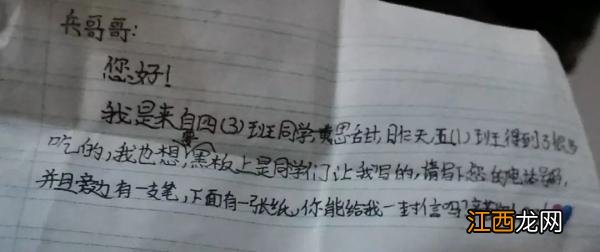 兵哥哥:
您好!
我是来自四(3)班同学,昨天,五(1)班得到了很多
吃的,我也想要,黑板上是同学们让我写的,请写下您的电话号码,
并且旁边有一支笔,下面有一张纸,你能给我一封信吗?
江西龙网